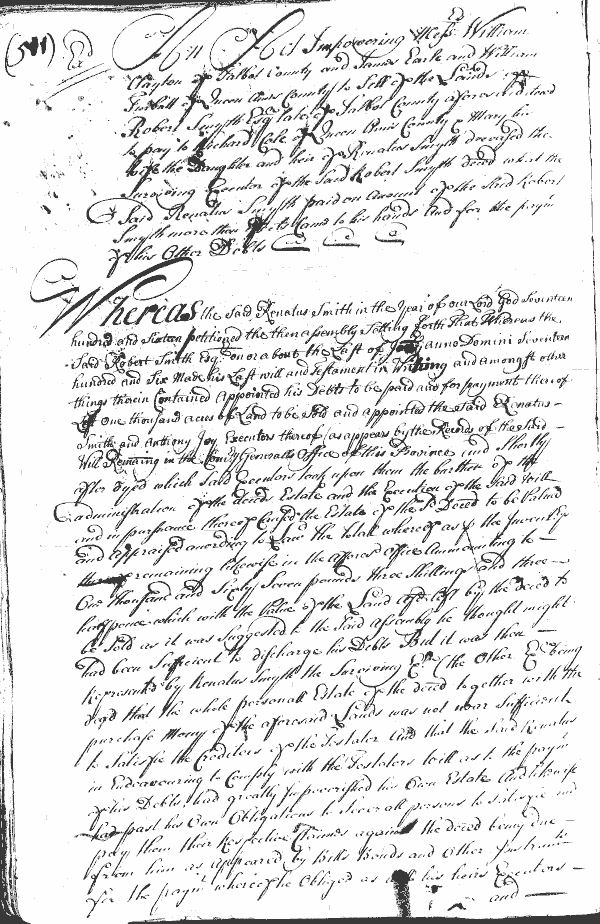 (511) Ed An Act Impowering Mess.rs William
Clayton of Talbot County and James Earle and William
Turbutt of Queen Anns County to Sell of the Lands of
Robert Smyth Esq.r late of Talbot County aforesaid decd
to pay to Richard Cole of Queen Anns County & Mary his
wife the Daughter and heir of Renatus Smyth deceased the
Surviving Executor of the Said Robert Smyth Decd what the
Said Renatus Smyth paid on account of the Said Robert
Smyth more than Assets Came to his hands And for the paym.t
of his Other Debts
Whereas the Said Renatus Smith in the Year of our Lord God Seventeen
hundred and Sixteen petitioned the then assembly Setting forth That Whereas the
Said Robert Smith Esq.r on or about the Last of anno Domini Seventeen
hundred and Six Made his Last will and testament in Writing and amongst other
things therein Contained appointed his Debts to be paid and for payment thereof
Left One thousand acres of Land to be Sold and appointed the Said Renatus
Smith and Anthony Joy Executors thereof (as appears by the Records of the Said
Will Remaining in the Comis.y Generalls Office of this Province and Shortly
after dyed which Said Executors took upon them the burthen of the
administration of the deceds Estate and the Execution of the Said Will
and in pursuance thereof Caused the Estate of the Sd Deced to be Valued
and appraised according to Law the total whereof as p the Inventory
remaining likewise in the aforesd office Ammounting to
One thousand and Sixty Seven pounds three Shillings and three
halfpence which with the Value of the Land afd Left by the deced to
be Sold as it was Suggested to the Said assembly he thought might
had been Sufficient to discharge his Debts But it was then
Represented by Renatus Smyth the Surviving Ex.r (the Other Ex.r being
dead that the whole personall Estate of the deced together with the
purchase Mony of the aforesaid Lands was not near Sufficient
to Satisfie the Creditors of the Testator And that the Said Renatus
in Endeavouring to Comply with the Testators Will as to the paym.t
of his Debts had greatly Impoverished his Own Estate And likewise
had past his Own Obligations to Severall persons to Satisfie and
pay them their Respective Claimes against the deced being due
from him as appeared by Bills Bonds and Other Instrum.ts
for the paym.t whereof he Obliged as well his heirs Executors
and